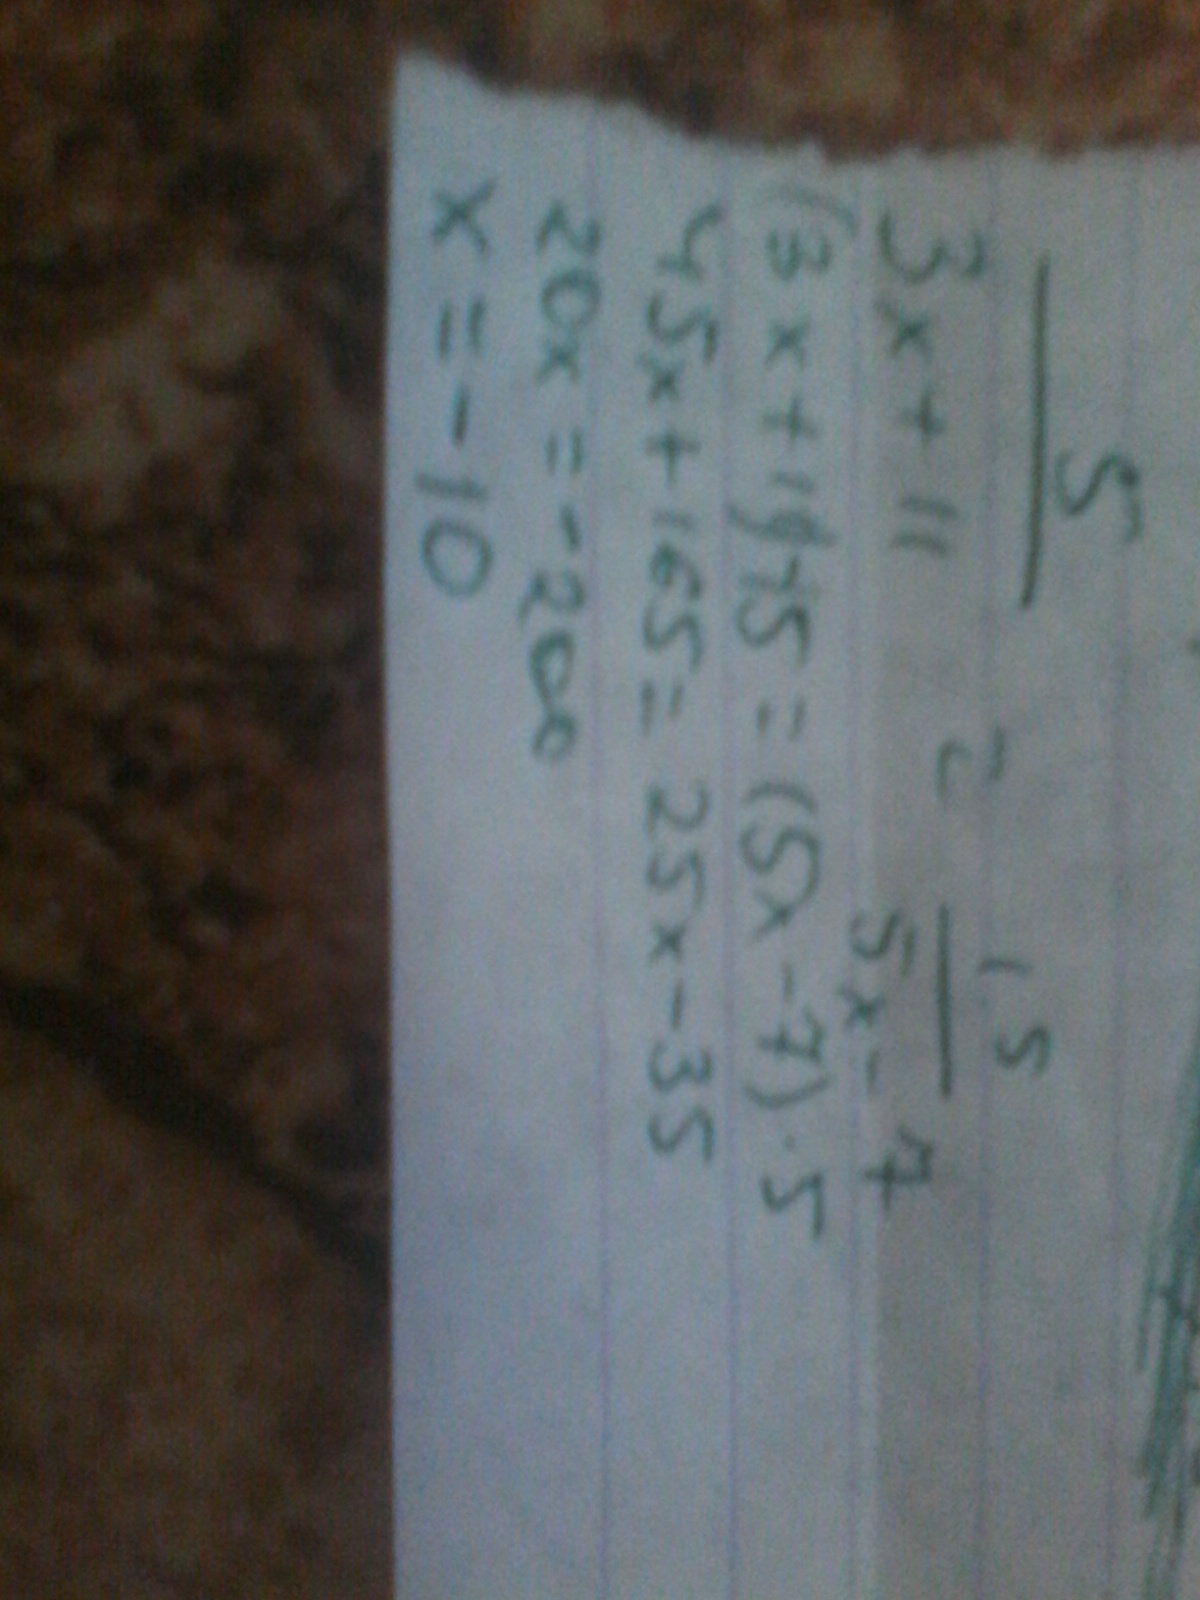 5 = 15
3x + 11 5x - 7
(3x+11)·15 = (5x-7)·5
45x+165 = 25x-35
20x = -200
x = -10